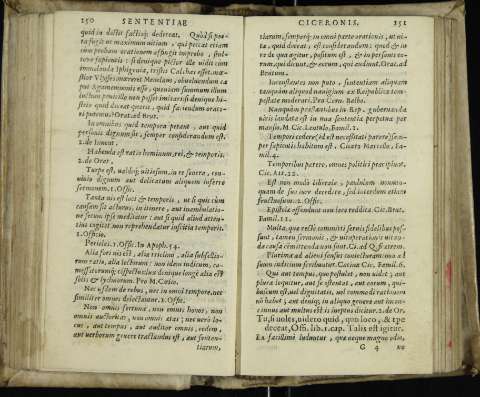 150 SENTENTIAE
quod in dictis factisq; dedeceat. Quòd si poe-
ta fugit ut maximum uitium, qui peccat etiam
cum probam orationem affingit improbo, stul-
tove sapientis: si denique pictor ille uidit cum
immolanda Iphigenia, tristis Calchas esset, mœ-
stior Ulysses, mœreret Menelaus, obuoluendum ca-
put Agamemnonis esse, quoniam summum illum
luctum penicillo non posset imitari: si denique hi-
strio quid deceat quærit, quid faciendum orato-
ri putemus? Orat. ad Brut.
In omnibus quid tempora petant, aut quid
personis dignum sit, semper considerandum est.
2. de Inuent.
Habenda est ratio hominum, rei, & temporis.
2. de Orat.
Turpe est, ualdeq; uitiosum, in re seuera, con-
uiuio dignum aut delicatum aliquem inferre
sermonem. 1. Offic.
Tanta uis est loci & temporis, ut si quis cum
causam sit acturus, in itinere, aut in ambulatio-
ne secum ipse meditetur: aut si quid aliud atten-
tius cogitet non reprehendatur inscitia temporis.
1. Officio.
Pericles. 1. Offic. In Apoph. 54.
Alia fori uis est, alia triclinii, alia subsellio-
rum ratio, alia lectorum: non idem iudicum, co-
messatorumq; conspectus: lux denique longè alia est
solis & lychnorum. Pro M. Cælio.
Nec iisdem de rebus, nec in omni tempore, nec
similiter omnes delectantur. 1. Offic.
Non omnis fortuna, non omnis honos, non
omnis auctoritas, non omnis ætas: nec uerò lo-
cus, aut tempus, aut auditor omnis, eodem,
aut uerborum genere tractandus est, aut senten-
tiarum,
CICERONIS. 151
tiarum, semperq; in omni parte orationis, ut ui-
ta, quid deceat, est considerandum: quod & in
re de qua agitur, positum est, & in personis eo-
rum, qui dicunt, & eorum, qui audiunt. Orat. ad
Brutum.
Inconstantis non puto, sententiam aliquam
tanquam aliquod nauigium ex Reipublicæ tem-
pestate moderari. Pro Corn. Balbo.
Nunquam præstantibus in Rep. gubernanda
uiris laudata est in una sententia perpetua per
mansio. M. Cic. Lentulo, Famil. 1.
Tempori cedere, id est necessitati parere, sem-
per sapientis habitum est. Cicero Marcello, Fa-
mil. 4.
Temporibus parere, omnes politici præcipiunt.
Cic. Att. 12.
Est non modò liberale, paululum nonnun-
quam de suo iure decedere, sed interdum etiam
fructuosum. 2. Offic.
Epistola offendimur non loco reddita. Cic. Brut.
Famil. 11.
Multa, quæ rectè committi seruis fidelibus pos-
sunt, tamen sermonis, & uituperationis uitan-
dæ causa committenda non sunt. Ci. ad Q. fratrem.
Plurima ad alieni sensus coniecturam non ad
suum iudicium scribuntur. Catinæ Cic. Famil. 6.
Qui aut tempus, quo postulet, non uidet, aut
plura loquitur, aut se ostentat, aut eorum, qui-
buscum est, aut dignitatis, uel commodi rationem
nō habet, aut deniq; in aliquo genere aut incon-
cinnus aut multus est: is ineptus dicitur. 2. de Or.
Tu, si uoles, uideto quid, quo loco, & τρε
deceat, Offi. lib. 1. cap. Talis est igitur.
Ex facillimè luduntur, quæ neque magno odio,
G 4 ne